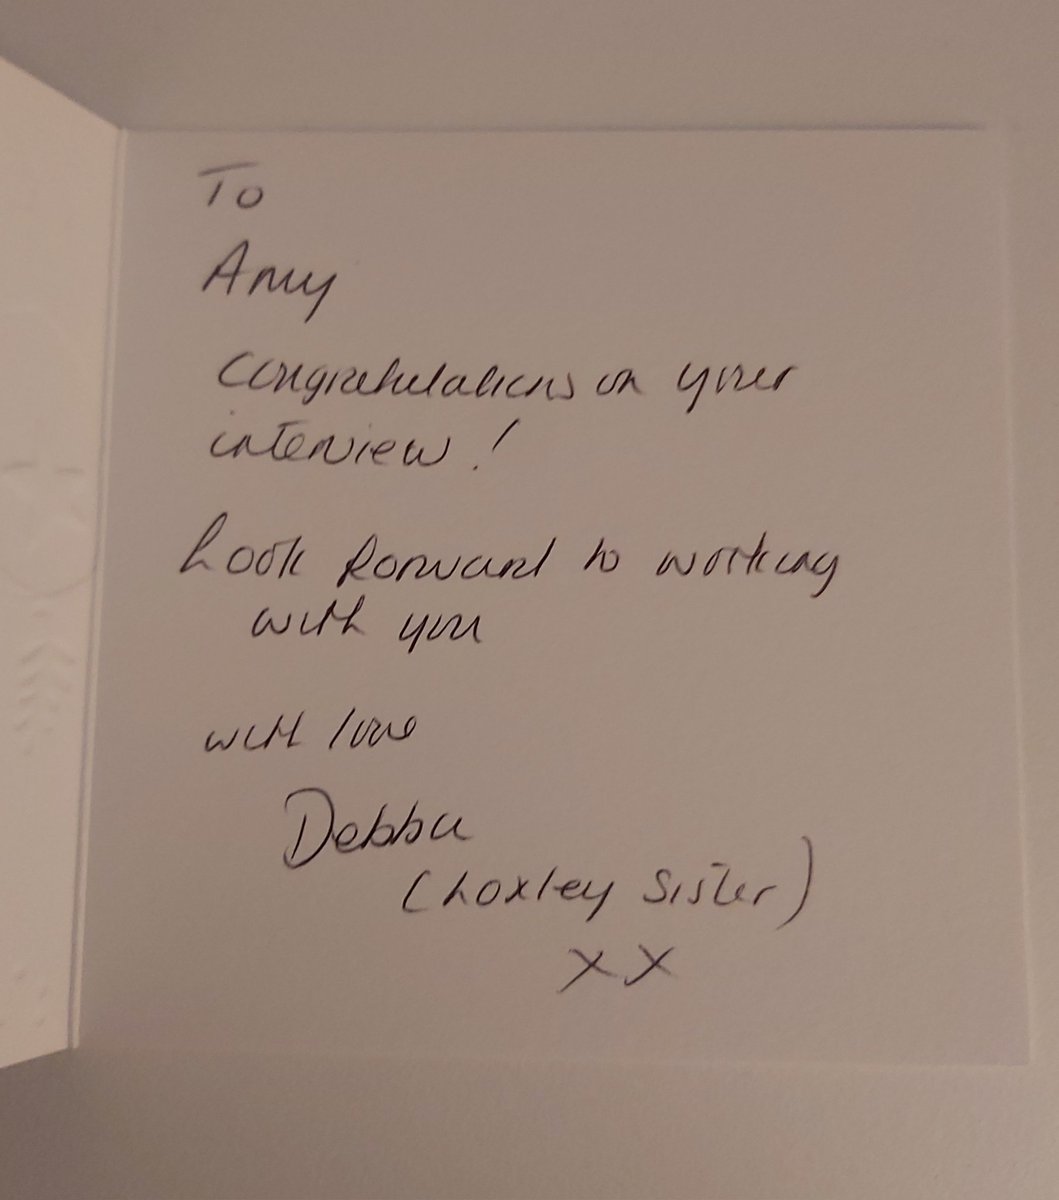 To
Amy
Congratulations on your
interview!
Look forward to working
with you
with love
Debbie
(Loxley Sister)
xx